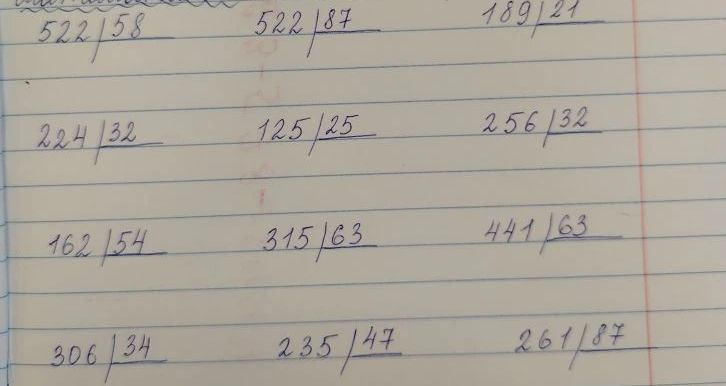 522 | 58 522 | 87 189 | 21
224 | 32 125 | 25 256 | 32
162 | 54 315 | 63 441 | 63
306 | 34 235 | 47 261 | 87